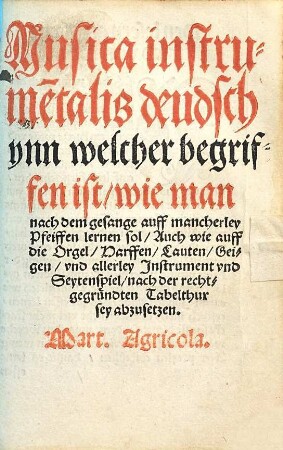 Musica instru-
mētalis deudsch
ynn welcher begrif-
fen ist/wie man
nach dem gesange auff mancherley
Pfeiffen lernen sol/Auch wie auff
die Orgel/Harffen/Lauten/Gei-
gen/vnd allerley Instrument vnd
Seytenspiel/nach der recht-
gegründten Tabelthur
sey abzusetzen.
Mart. Agricola.